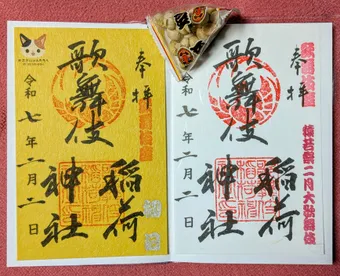 奉拝
猿若祭二月大歌舞伎
歌舞伎
稲荷
神社
令和七年二月二日
奉拝
歌舞伎
稲荷
神社
令和七年二月二日